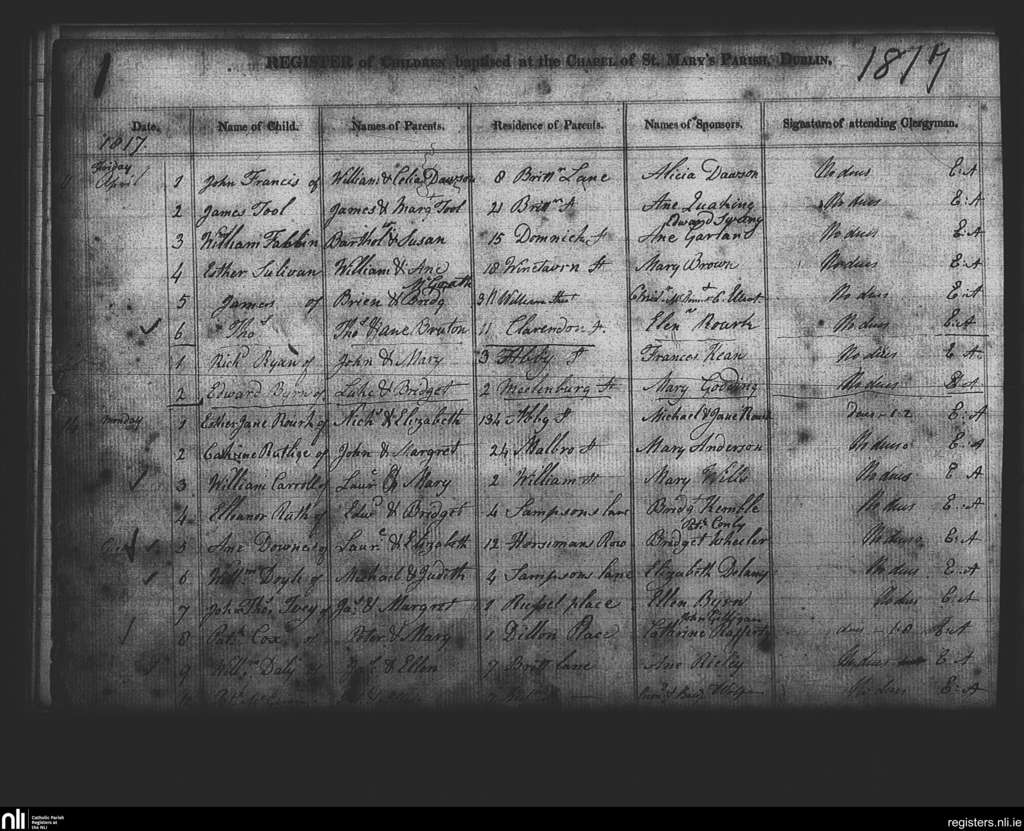 1 REGISTER of CHILDREN baptised at the CHAPEL of ST. MARY'S PARISH, DUBLIN. 1817
Date. Name of Child. Names of Parents. Residence of Parents. Names of Sponsors. Signature of attending Clergyman.
1817.
Friday
April 1 John Francis of William & Celia Dawson 8 Brittn Lane Alicia Dawson No dues E: A
2 James Tool James & Margt Tool 21 Brittn St Ane No dues E: A
Edward
3 William Fabbin Barthol & Susan 15 Domnick St Ane Garland No dues E: A
4 Esther Sulivan William & Ane 18 Winetavrn St Mary Brown No dues E: A
McGrath
5 James of Brien & Bridg William No dues E: A
6 Thos Thos & Jane Bruton 11 Clarendon St. Elen Rourk No dues E: A
1 Richd Ryan of John & Mary 3 Abby St Frances Kean No dues E: A
2 Edward Byrn of Luke & Bridget 2 Meclenburg St Mary Godding No dues E: A
Monday 1 Esther Jane Rourk of Nichs & Elizabeth 134 Abby St Michael & Jane Dues E: A
2 Cathrine of John & Margret 24 Malbro St Mary Anderson No dues E: A
3 William Carroll of Laur & Mary 2 William St Mary Wills No dues E: A
4 Elleanor of Edwd & Bridget 4 Sampsons lane Bridgt Kemble No dues E: A
Patk Conly
5 Ane Downes of Laurc & Elizabeth 12 Horsimans Row Bridget Wheeler No dues E: A
6 Willm Doyle of Michael & Judith 4 Sampsons lane Elizabeth Delany No dues E: A
7 John Thos Ivey of Jas & Margret 1 Russel place Ellen Byrn No dues E: A
John
8 Patk Cox of Peter & Mary 1 Dillon Place Cathrine Rafferty dues E: A
9 Willm Daly of & Ellen 7 Britt lane Ane No dues E: A
No dues E: A
nli Catholic Parish
Registers at
the NLI
registers.nli.ie